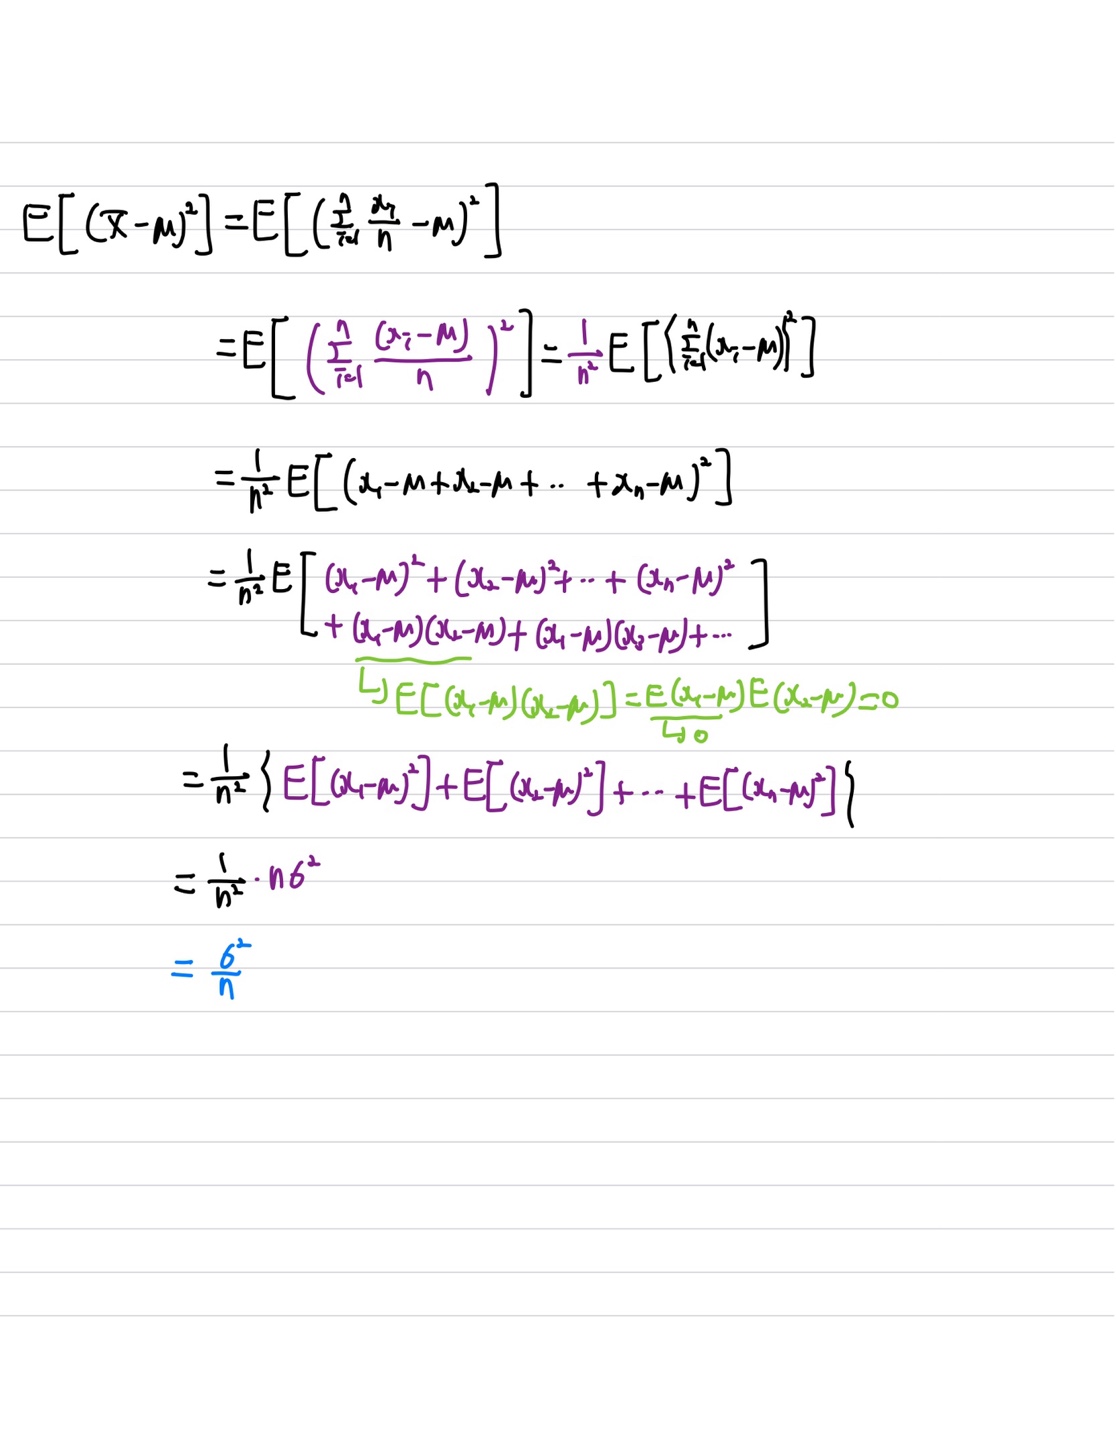 E[(x̄-μ)²] = E[(Σ_{i=1}^{n} x_i/n - μ)²]
= E[(Σ_{i=1}^{n} (x_i-μ)/n)²] = 1/n² E[{Σ_{i=1}^{n}(x_i-μ)}²]
= 1/n² E[(x₁-μ+x₂-μ+‥ +x_n-μ)²]
= 1/n² E[(x₁-μ)²+(x₂-μ)²+‥+(x_n-μ)²
+(x₁-μ)(x₂-μ)+(x₁-μ)(x₃-μ)+…]
↳ E[(x₁-μ)(x₂-μ)] = E(x₁-μ)E(x₂-μ)=0
↳ 0
= 1/n² {E[(x₁-μ)²]+E[(x₂-μ)²]+…+E[(x_n-μ)²]}
= 1/n² · nσ²
= σ²/n